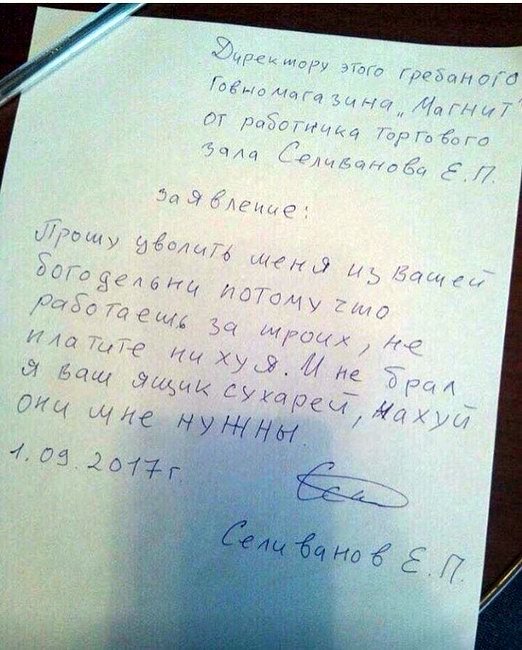 Директору этого гребаного
Говномагазина "Магнит"
от работника торгового
зала Селиванова Е.П.
заявление:
Прошу уволить меня из вашей
богодельни потому что
работаешь за троих, не
платите ни хуя. И не брал
я ваш ящик сухарей, нахуй
они мне нужны.
1.09.2017г.
Селиванов Е.П.